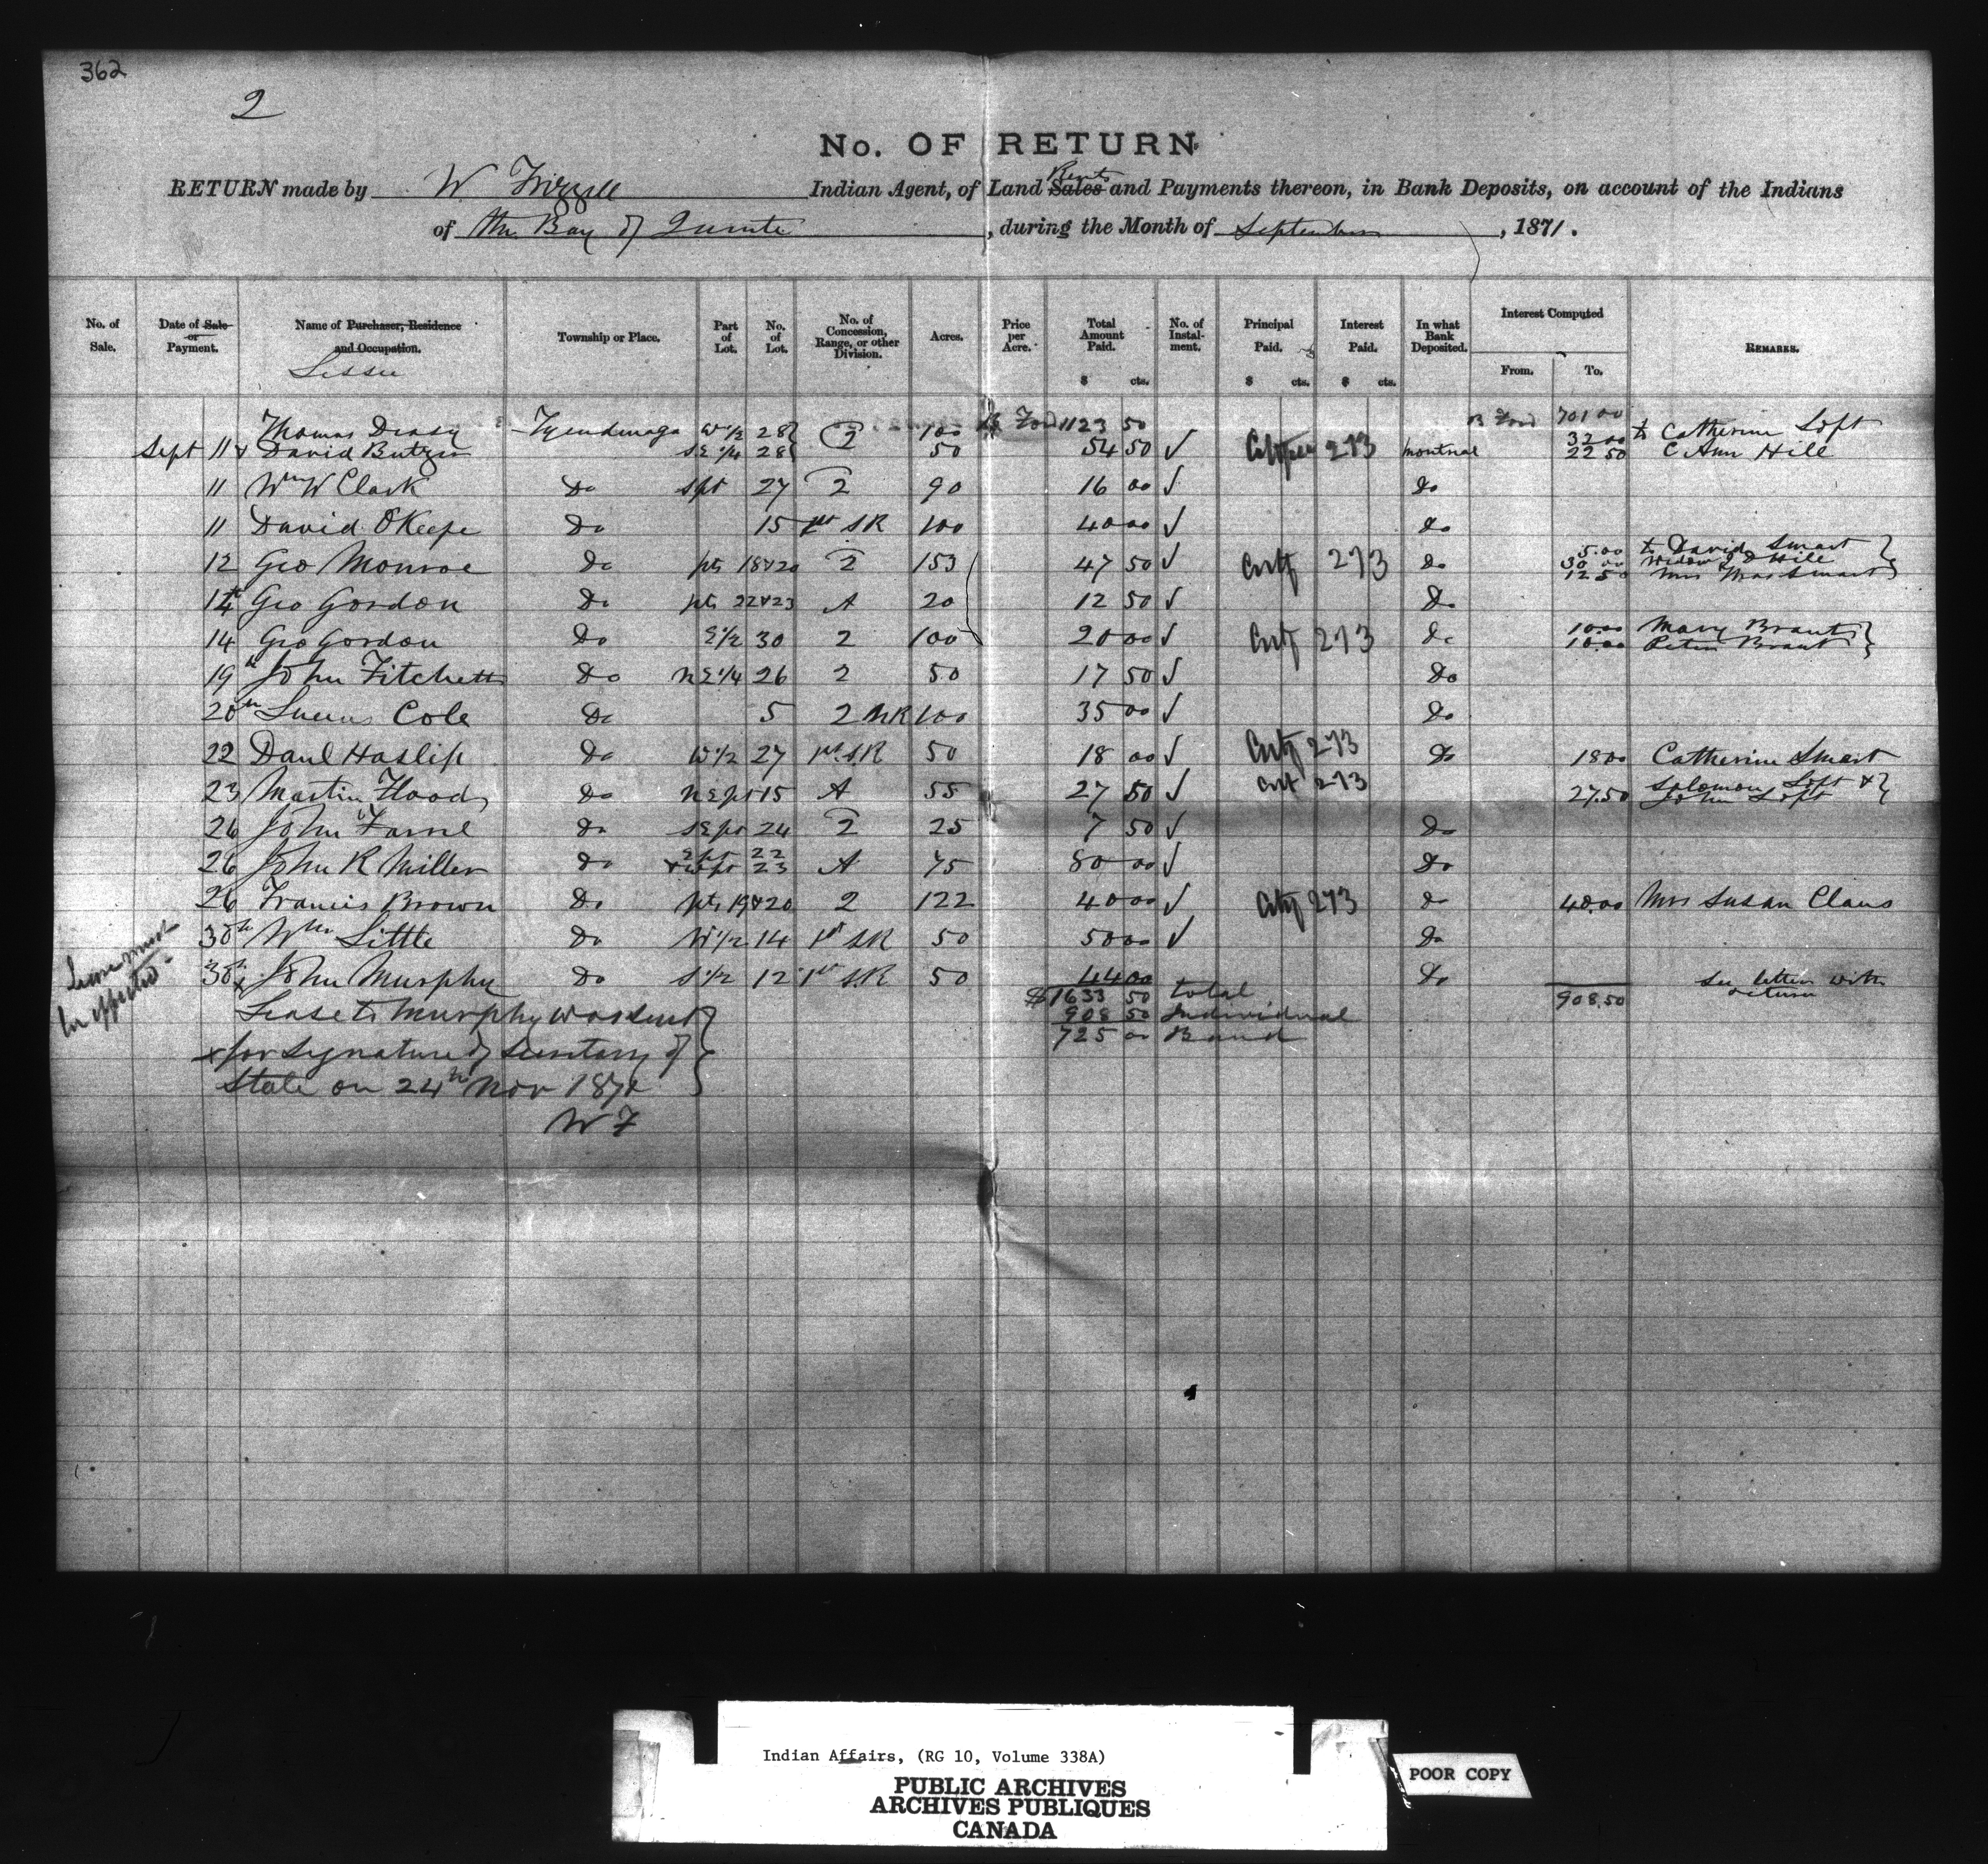 362
2
No. OF RETURN
RETURN made by W Frizzell Indian Agent, of Land Sales Rents and Payments thereon, in Bank Deposits, on account of the Indians
of the Bay of Quinte, during the Month of September, 1871.
No. of Sale. Date of Sale or Payment. Name of Purchaser, Residence and Occupation. Lessee Township or Place. Part of Lot. No. of Lot. No. of Concession, Range, or other Division. Acres. Price per Acre. Total Amount Paid. $ cts. No. of Instalment. Principal Paid. $ cts. Interest Paid. $ cts. In what Bank Deposited. Interest Computed From. To. REMARKS.
B Ford 1123 50 B Ford 701 00
Thomas Deasy Tyendinaga W 1/2 28 } 2 100 32 00 to Catherine Loft
Sept 11 & David Butzen S E 1/4 28 } 50 54 50 ✓ 273 Montreal 22 50 C Ann Hill
11 Wm W Clark Do spt 27 2 90 16 00 ✓ do
11 David O'Keefe Do 15 1st S R 100 40 00 ✓ do
5.00 to David Smart }
12 Geo Monroe Do pts 18 & 20 2 153 47 50 ✓ Certf 273 do 30 00 Widow J D Hill
12 50 Mrs Smart
14th Geo Gordon Do pts 22 & 23 A 20 12 50 ✓ Do
14 Geo Gordon Do E 1/2 30 2 100 20 00 ✓ Certf 273 do 10.00 Mary Brant }
10.00 Peter Brant
19th John Fitchett Do N E 1/4 26 2 50 17 50 ✓ Do
20th Lucius Cole Do 5 2 N R 100 35 00 ✓ Do
22 Danl Haslip Do W 1/2 27 1st S.R 50 18 00 ✓ Certf 273 Do 18 00 Catherine Smart
23 Martin Flood Do N E pt 15 A 55 27 50 ✓ Cert 273 27.50 Solomon Loft & }
John Loft
26 John Do S E pt 24 2 25 7 50 ✓ Do
26 John R Miller Do E pt 22 & W pt 23 A 75 80 00 ✓ Do
26 Francis Brown Do pts 19 & 20 2 122 40 00 ✓ Certf 273 do 40.00 Mrs Susan Claus
30th Wm Little Do W 1/2 14 1st S.R 50 50 00 ✓ Do
30th x John Murphy Do S 1/2 12 1st S.R 50 44 00 Do see letter with return
Lease must be effected
$1633 50 total 908.50
Lease to Murphy was sent } 908 50 Individual
725 00 Band
x for signature of Secretary of
State on 24th Nov 1871
W F
Indian Affairs, (RG 10, Volume 338A)
PUBLIC ARCHIVES
ARCHIVES PUBLIQUES
CANADA
POOR COPY